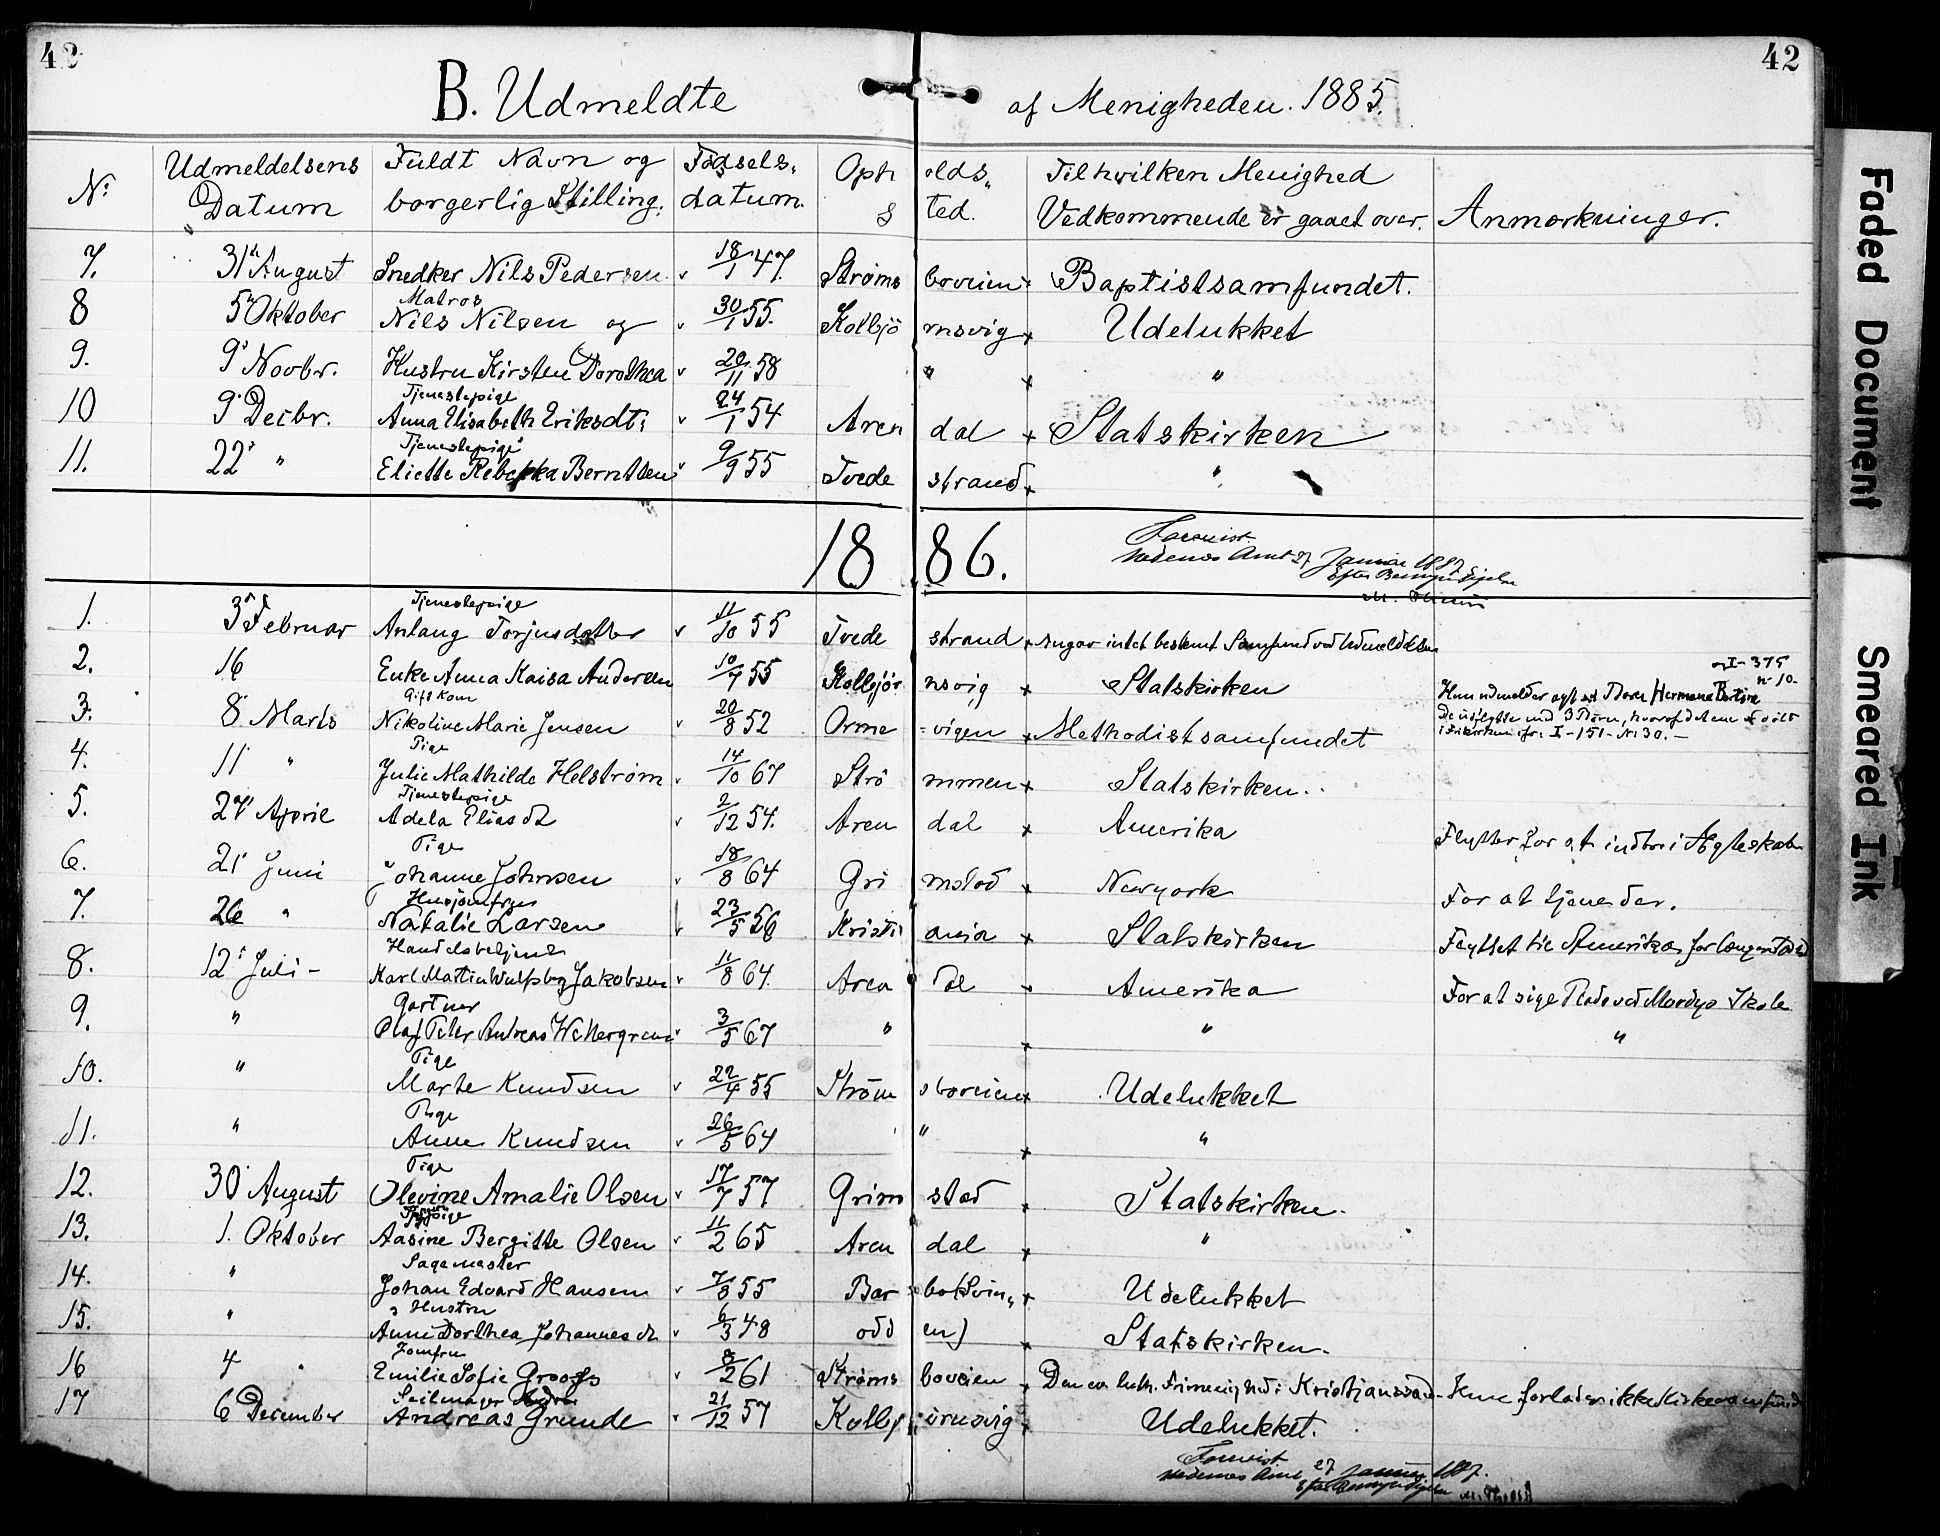 42 42
B. Udmeldte af Menigheden. 1885.
No Udmeldelsens Datum Fuldt Navn og borgerlig Stilling. Fødsels-datum. Opholds-Sted. Til hvilken Menighed Vedkommende er gaaet over. Anmærkninger.
7. 31 August Snedker Nils Pedersen 18/1 47. Strømsboveien Baptistsamfundet.
Matros
8 5 Oktober Nils Nilsen og 30/1 55. Kolbjørnsvig Udelukket
9. 9 Novbr. Hustru Kirsten Dorothea 20/11 58 " "
Tjenestepige
10 9 Decbr. Anna Elisabeth Eriksdt: 24/1 54 Arendal Statskirken
Tjenestepige
11. 22 " Eliette Rebekka Berntsen 9/9 55 Tvedestrand "
1886.
Forevist
Nedenes Amt 27 Januar 1887
Efter Bemyndigelse
Tjenestepige
1. 3 Februar Anlaug Torjusdatter 11/10 55 Tvedestrand intet bestemt Samfund ved Udmeldelsen
2. 16 Enke Anna Kaisa Andersen 10/7 55 Kolbjørnsvig Statskirken
I-375
n-10-
Gift Kone
3. 8 Marts Nikoline Marie Jensen 20/8 52 Ormevigen Methodistsamfundet
Hun udmelder Hermana
med 3 Børn, hvoraf det ene
I-151-No 30.-
Pige
4. 11 " Julie Mathilde Helstrøm 14/10 67 Strømmen Statskirken.
Tjenestepige
5. 27 April Adela Eliasdt 2/12 54. Arendal Amerika Flytter for at indtræ i Ægteskab
Pige
6. 21 Juni Johanne Johnsen 18/8 64 Grimstad Newyork For at tjene der.
Husjomfru
7. 26 " Natalie Larsen 23/5 56 Kristiania Statskirken Flyttet til Amerika for længere Tid
Handelsbetjent
8. 12 Juli - Karl Martin Wulfsberg Jakobsen 11/8 64. Arendal Amerika For at sige
Gartner
9. " Olaf Peter Andreas Wettergreen 3/5 67 " " "
Pige
10. " Marte Knudsen 22/4 55 Strømsboveien Udelukket
Pige
11. " Anne Knudsen 26/5 64 " "
Pige
12. 30 August Olevine Amalie Olsen 17/7 57 Grimstad Statskirken.
13. 1. Oktober Aasine Bergitte Olsen 11/2 65 Arendal "
Sagmester
14. " Johan Edvard Hansen 7/8 55 Bar Udelukket
Hustru
15. " Anne Dorthea Johannesdt 6/3 48 odden) Statskirken.
Jomfru
16 4 " Emilie Sofie Groogs 8/2 61 Strømsboveien Den ev. luth. Frimenighed i Kristianssand - Hun forlader ikke Kirkesamfund
Seilmager
17 6 December Andreas Grunde 21/12 57 Kolbjørnsvig Udelukket.
Forevist
Nedenes Amt 27 Januar 1887.
Efter Bemyndigelse
Faded Document
Smeared Ink